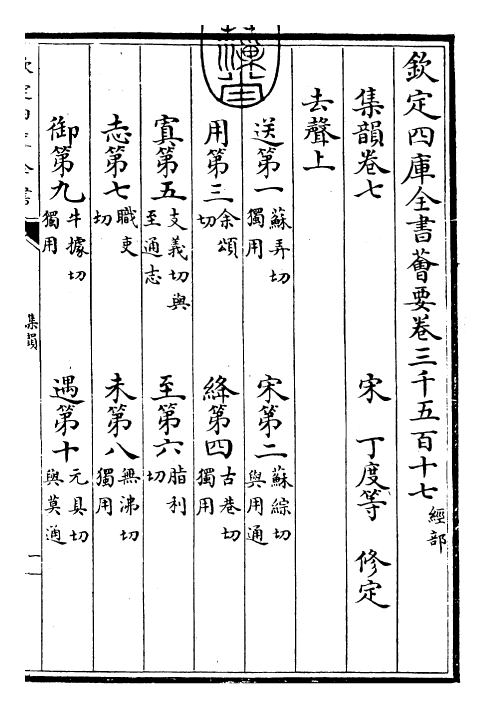 欽定四庫全書薈要卷三千五百十七 經部
集韻卷七 宋 丁度等 修定
去聲上
送第一 蘇弄切獨用 宋第二 蘇綜切與用通
用第三 余頌切 絳第四 古巷切獨用
寘第五 支義切與至通志 至第六 脂利切
志第七 職吏切 未第八 無沸切獨用
御第九 牛據切獨用 遇第十 元具切與莫通
集韻
一